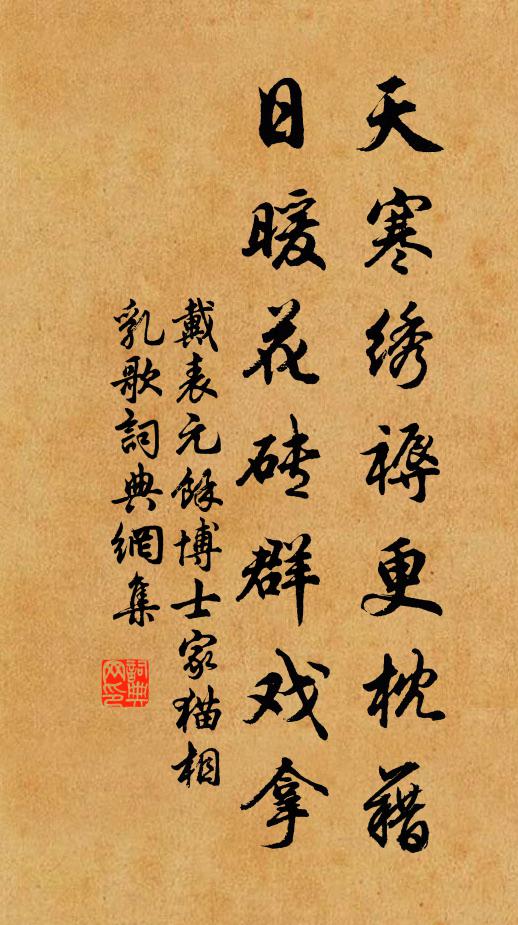 天寒绣褥更枕藉
日暖花砖群戏拿
戴表元餘博士家猫相
乳歌詞典網集
詞典网印